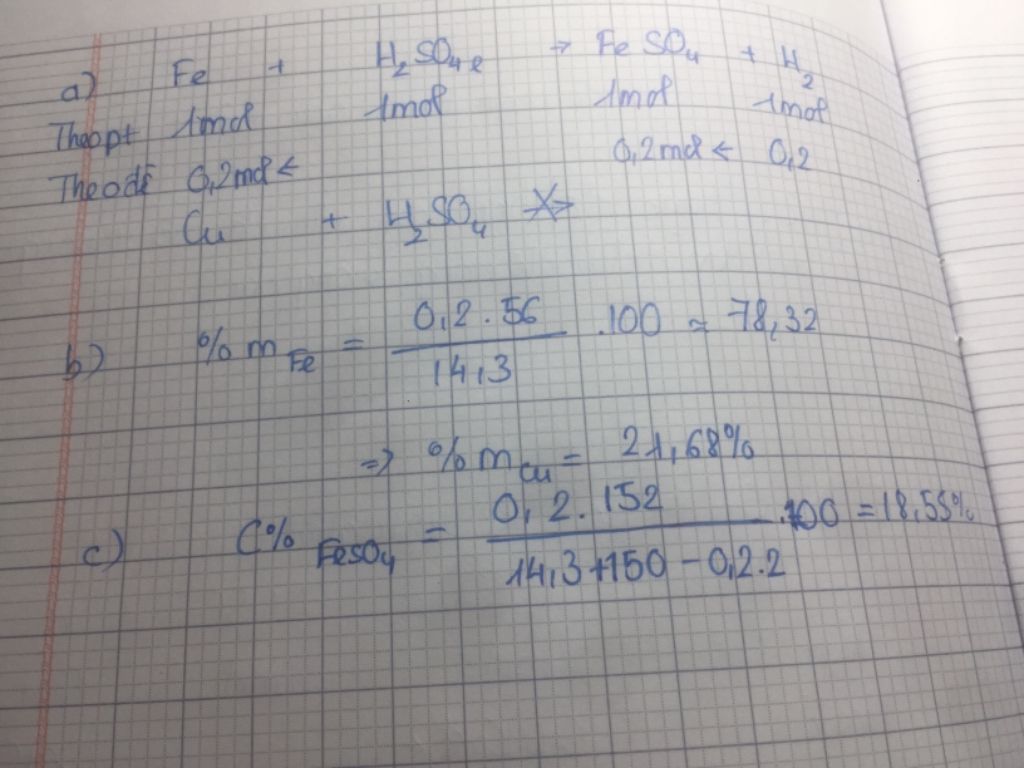 a) Fe + H2SO4e → FeSO4 + H2
Theopt 1mol 1mol 1mol 1mol
Theođề 0,2mol ← 0,2mol ← 0,2
Cu + H2SO4 -X->
b) %mFe = 0,2.56 / 14,3 .100 ≈ 78,32
=> %mCu = 21,68%
c) C%FeSO4 = 0,2.152 / 14,3+150-0,2.2 .100 = 18,55%